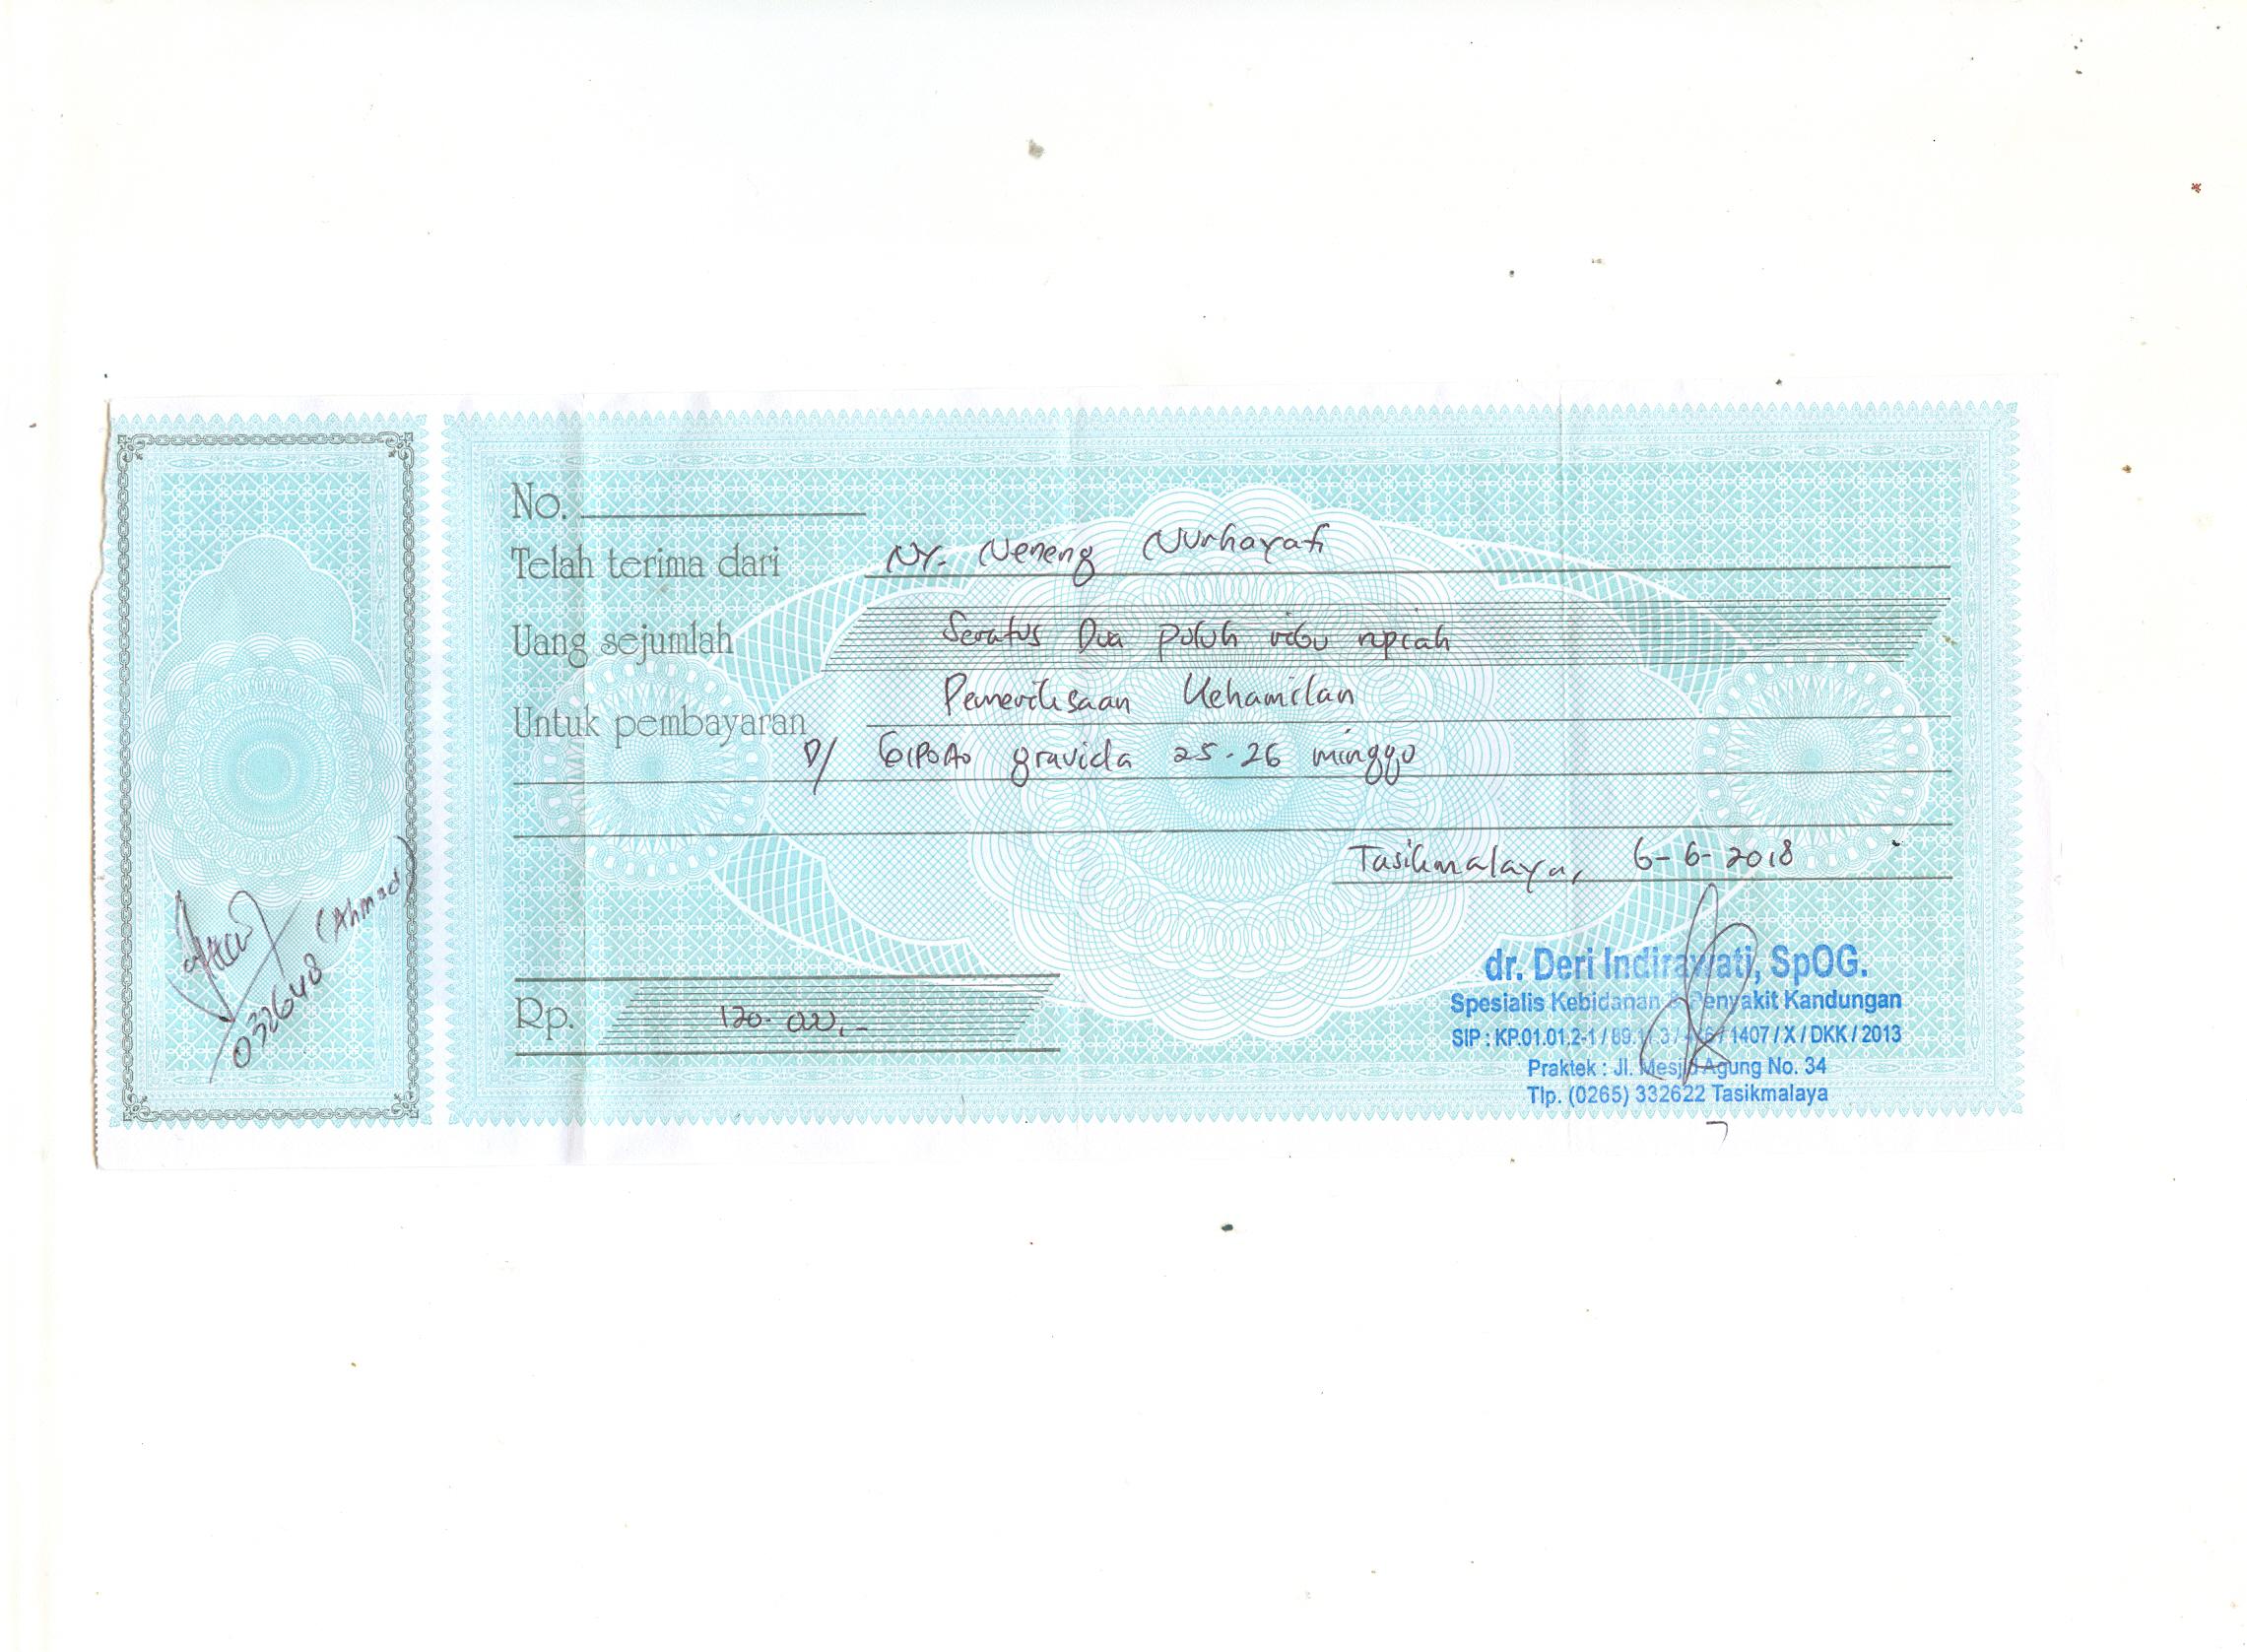 No.
Telah terima dari Ny. Neneng Nurhayati
Uang sejumlah Seratus Dua puluh ribu rupiah
Untuk pembayaran Pemeriksaan Kehamilan
D/ G1P0A0 gravida 25-26 minggu
Tasikmalaya, 6-6-2018
Rp. 120.000,-
dr. Deri Indirawati, SpOG.
Spesialis Kebidanan & Penyakit Kandungan
SIP : KP.01.01.2-1 / 1407 / X / DKK / 2013
Praktek : Jl. Mesjid Agung No. 34
Tlp. (0265) 332622 Tasikmalaya
0326048 (Ahmad)